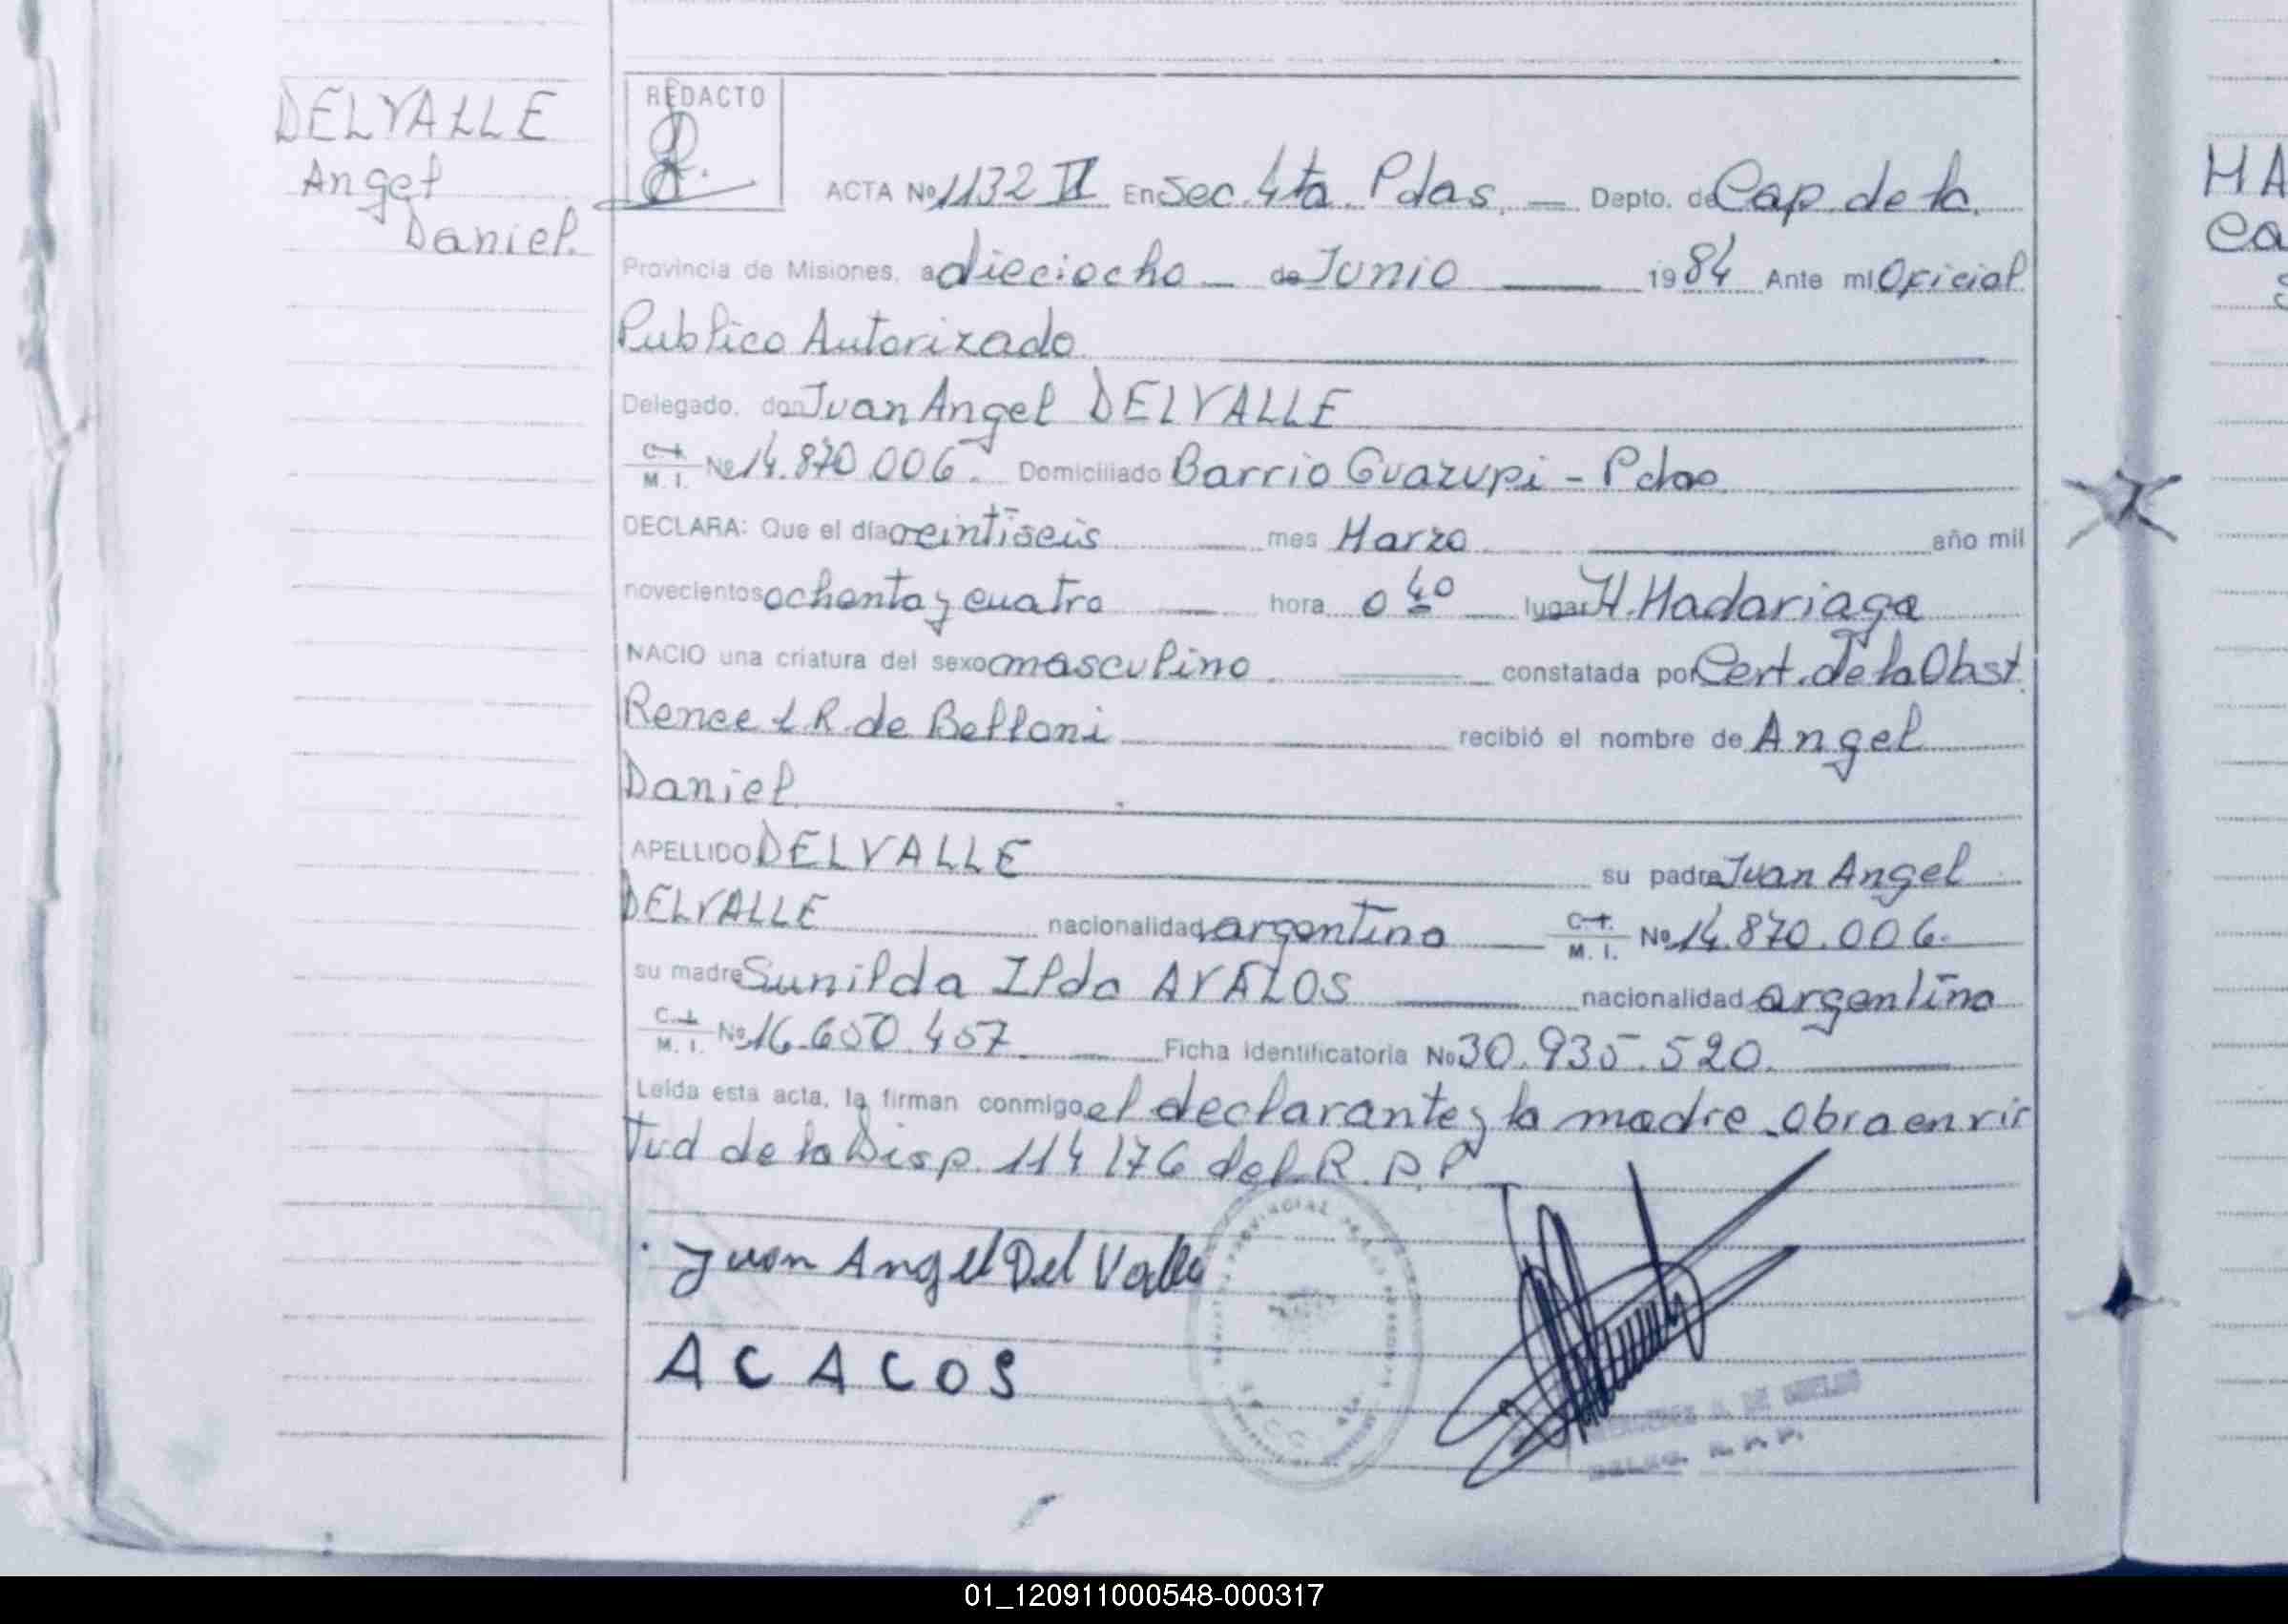 DELVALLE
Angel
Daniel.
REDACTO
ACTA Nº 1132 II En Sec. 4ta. Pdas. — Depto. de Cap. de la
Provincia de Misiones, a dieciocho — de Junio — 1984 Ante mí Oficial
Publico Autorizado
Delegado, don Juan Angel DELVALLE
C. I. M. I. Nº 14.870.006. Domiciliado Barrio Guazupi - Pdas
DECLARA: Que el día veintiseis — mes Marzo — año mil
novecientos ochenta y cuatro — hora 0 40 — lugar H. Madariaga
NACIO una criatura del sexo masculino. — constatada por Cert. de la Obst.
Renee L R. de Belloni — recibió el nombre de Angel
Daniel.
APELLIDO DELVALLE — su padre Juan Angel
DELVALLE — nacionalidad argentino — C. I. M. I. Nº 14.870.006.
su madre Sunilda Ilda AVALOS — nacionalidad argentina
C. I. M. I. Nº 16.650.457. — Ficha identificatoria Nº 30.935.520. —
Leída esta acta, la firman conmigo el declarante y la madre. Obra en vir
tud de la Disp. 114/76 del R.P.P.
Juan Angel Del Valle
A C A C O S
PROVINCIAL
DELEG. R. P. P.
HA
Ca
01_120911000548-000317